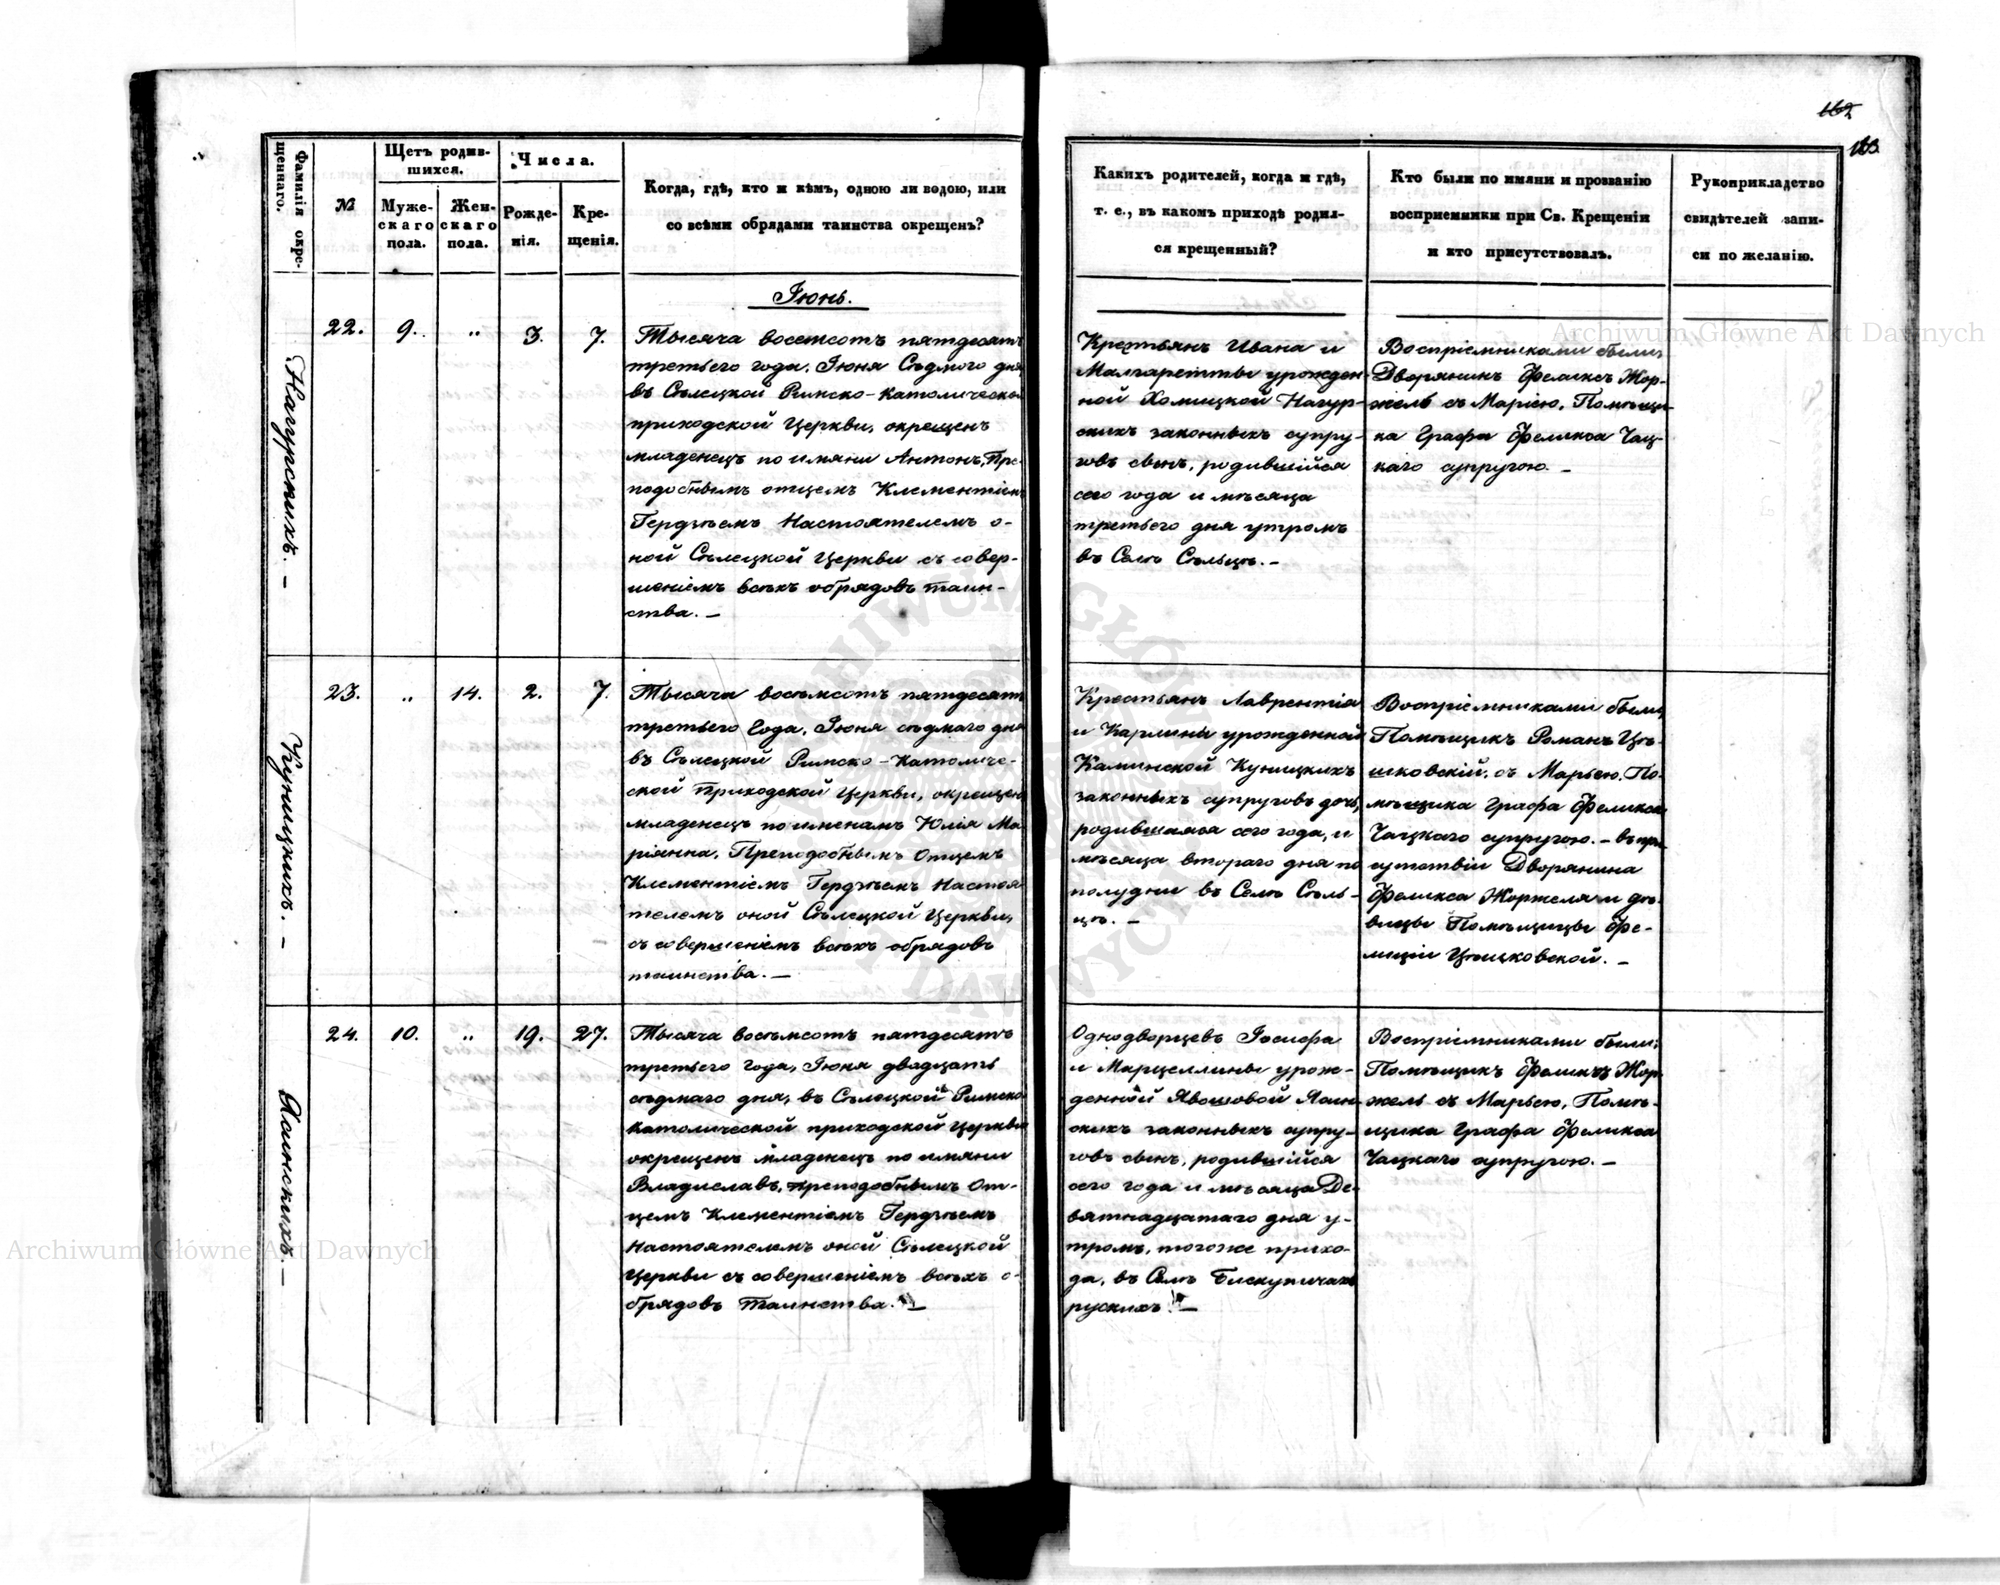 162
163.
Фамилія окре-
щеннаго.
№
Щетъ родив-
шихся.
Муже-
скаго
пола.
Жен-
скаго
пола.
Числа.
Рожде-
нія.
Кре-
щенія.
Когда, гдѣ, кто и кѣмъ, одною ли водою, или
со всѣми обрядами таинства окрещенъ?
Каких родителей, когда и гдѣ,
т. е., въ какомъ приходѣ родил-
ся крещенный?
Кто были по имяни и прозванію
воспріемники при Св. Крещеніи
и кто присутствовалъ.
Рукоприкладство
свидѣтелей запи-
си по желанію.
Іюнь.
Нагурскихъ. —
22. 9. „ 3. 7.
Тысяча восемсотъ пятдесятъ
третьего года, Іюня Седмого дня
въ Сѣлецкой Римско-Католической
приходской Церкви, окрещенъ
младенецъ по имяни Антонъ, Пре-
подобнымъ отцемъ Клементіемъ
Герджѣемъ Настоятелемъ о-
ной Сѣлецкой Церкви съ совер-
шеніемъ всѣхъ обрядовъ таин-
ства. —
Крестьянъ Ивана и
Малгаретты урожден-
ной Хомицкой Нагур-
скихъ законныхъ супру-
говъ сынъ, родившійся
сего года и мѣсяца
третьего дня утромъ
въ Селѣ Сѣльцѣ. —
Воспріемниками были
Дворянинъ Феликсъ Жор-
жель съ Маріею, Помѣщи-
ка Графа Феликса Чац-
каго супругою. —
Куницкихъ. —
23. „ 14. 2. 7.
Тысяча восѣмсотъ пятдесятъ
третьего Года, Іюня седмаго дня
въ Сѣлецкой Римско-Католиче-
ской Приходской Церкви, окрещенъ
младенецъ по именамъ Юлія Ма-
ріянна, Преподобнымъ Отцемъ
Клементіемъ Герджѣемъ Настоя-
телемъ оной Сѣлецкой Церкви,
съ совершеніемъ всѣхъ обрядовъ
таинства. —
Крестьянъ Лаврентія
и Карлины урожденной
Каминской Куницкихъ
законныхъ супруговъ дочь,
родившаяся сего года, и
мѣсяца втораго дня по
полудни въ Селѣ Сѣль-
цѣ. —
Воспріемниками были,
Помѣщикъ Романъ Цѣ-
шковскій, съ Марьею, По-
мѣщика Графа Феликса
Чацкаго супругою. — въ при-
сутствіи Дворянина
Феликса Жоржеля и дѣ-
вицы Помѣщицы Фе-
лиціи Цѣшковской. —
Ясинскихъ. —
24. 10. „ 19. 27.
Тысяча восѣмсотъ пятдесятъ
третьего года, Іюня двадцать
седмаго дня, въ Сѣлецкой Римско
католической приходской Церкви
окрещенъ младенецъ по имяни
Владиславъ, преподобнымъ От-
цемъ Клементіемъ Герджѣемъ
Настоятелемъ оной Сѣлецкой
Церкви съ совершеніемъ всѣхъ о-
брядовъ Таинства. —
Однодворцевъ Іосифа
и Марцеллины урож-
денной Явошовой Ясин-
скихъ законныхъ супру-
говъ сынъ, родившійся
сего года и мѣсяца Де-
вятнадцатаго дня у-
тромъ, тогоже прихо-
да, въ Селѣ Бискупичахъ
рускихъ. —
Воспріемниками были:
Помѣщикъ Феликсъ Жор-
жель съ Марьею, Помѣ-
щика Графа Феликса
Чацкаго супругою. —
Archiwum Główne Akt Dawnych
Archiwum Główne Akt Dawnych
ARCHIWUM GŁÓWNE AKT DAWNYCH